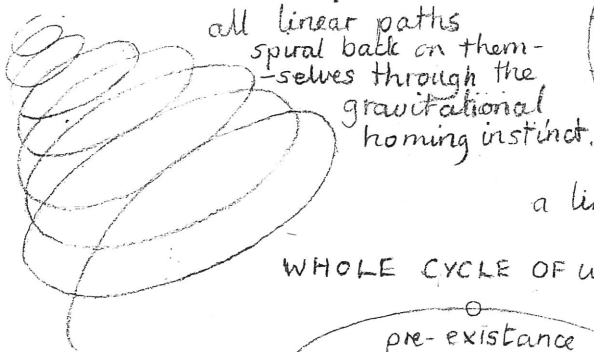 all linear paths
spiral back on them-
-selves through the
gravitational
homing instinct.
a
WHOLE CYCLE OF
pre-existance